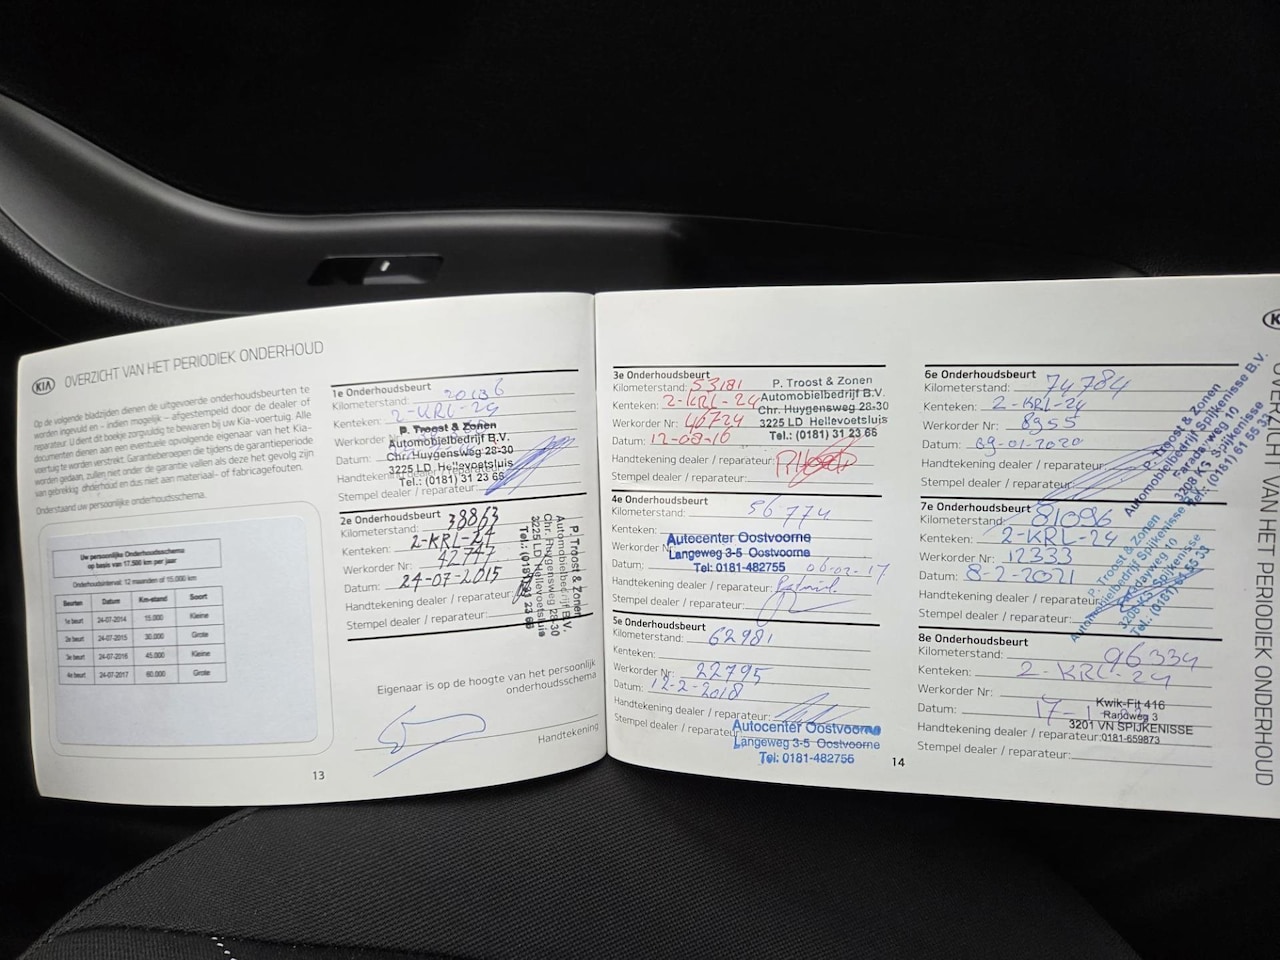 KIA OVERZICHT VAN HET PERIODIEK ONDERHOUD
Op de volgende bladzijden dienen de uitgevoerde onderhoudsbeurten te
worden ingevuld en - indien mogelijk - afgestempeld door de dealer of
reparateur. U dient dit boekje zorgvuldig te bewaren bij uw Kia-voertuig. Alle
documenten dienen aan eventuele opvolgende eigenaar van het Kia-
voertuig te worden verstrekt. Garantieberoepen die tijdens de garantieperiode
worden gedaan, zullen niet onder de garantie vallen als deze het gevolg zijn
van gebrekkig onderhoud en dus niet aan materiaal- of fabricagefouten.
Onderstaand uw persoonlijke onderhoudsschema.
Uw persoonlijke Onderhoudsschema
op basis van 17.500 km per jaar
Onderhoudsinterval: 12 maanden of 15.000 km
Beurten Datum Km-stand Soort
1e beurt 24-07-2014 15.000 Kleine
2e beurt 24-07-2015 30.000 Grote
3e beurt 24-07-2016 45.000 Kleine
4e beurt 24-07-2017 60.000 Grote
13
1e Onderhoudsbeurt
Kilometerstand: 20136
Kenteken: 2-KRL-24
Werkorder Nr:
Datum:
Handtekening dealer / reparateur:
Stempel dealer / reparateur:
P. Troost & Zonen
Automobielbedrijf B.V.
Chr. Huygensweg 28-30
3225 LD Hellevoetsluis
Tel.: (0181) 31 23 66
2e Onderhoudsbeurt
Kilometerstand: 38863
Kenteken: 2-KRL-24
Werkorder Nr: 42747
Datum: 24-07-2015
Handtekening dealer / reparateur:
Stempel dealer / reparateur:
P. Troost & Zonen
Automobielbedrijf B.V.
Chr. Huygensweg 28-30
3225 LD Hellevoetsluis
Tel.: (0181) 31 23 66
Eigenaar is op de hoogte van het persoonlijk
onderhoudsschema
Handtekening
3e Onderhoudsbeurt
Kilometerstand: 53181
Kenteken: 2-KRL-24
Werkorder Nr: 46724
Datum: 12-08-16
Handtekening dealer / reparateur:
Stempel dealer / reparateur:
P. Troost & Zonen
Automobielbedrijf B.V.
Chr. Huygensweg 28-30
3225 LD Hellevoetsluis
Tel.: (0181) 31 23 66
4e Onderhoudsbeurt
Kilometerstand: 56774
Kenteken:
Werkorder Nr:
Datum: 06-02-17
Handtekening dealer / reparateur:
Stempel dealer / reparateur:
Autocenter Oostvoorne
Langeweg 3-5 Oostvoorne
Tel: 0181-482755
5e Onderhoudsbeurt
Kilometerstand: 62981
Kenteken:
Werkorder Nr: 22795
Datum: 12-2-2018
Handtekening dealer / reparateur:
Stempel dealer / reparateur:
Autocenter Oostvoorne
Langeweg 3-5 Oostvoorne
Tel: 0181-482755
14
6e Onderhoudsbeurt
Kilometerstand: 74784
Kenteken: 2-KRL-24
Werkorder Nr: 8955
Datum: 09-01-2020
Handtekening dealer / reparateur:
Stempel dealer / reparateur:
P. Troost & Zonen
Automobielbedrijf Spijkenisse B.V.
Faradayweg 10
3208 KS Spijkenisse
Tel.: (0181) 61 55 33
7e Onderhoudsbeurt
Kilometerstand: 81096
Kenteken: 2-KRL-24
Werkorder Nr: 12333
Datum: 8-2-2021
Handtekening dealer / reparateur:
Stempel dealer / reparateur:
P. Troost & Zonen
Automobielbedrijf Spijkenisse
Faradayweg 10
3208 KS Spijkenisse
Tel.: (0181) 61 55 33
8e Onderhoudsbeurt
Kilometerstand: 96334
Kenteken: 2-KRL-24
Werkorder Nr:
Datum: 17-1
Handtekening dealer / reparateur:
Stempel dealer / reparateur:
Kwik-Fit 416
Randweg 3
3201 VN SPIJKENISSE
0181-659873
OVERZICHT VAN HET PERIODIEK ONDERHOUD